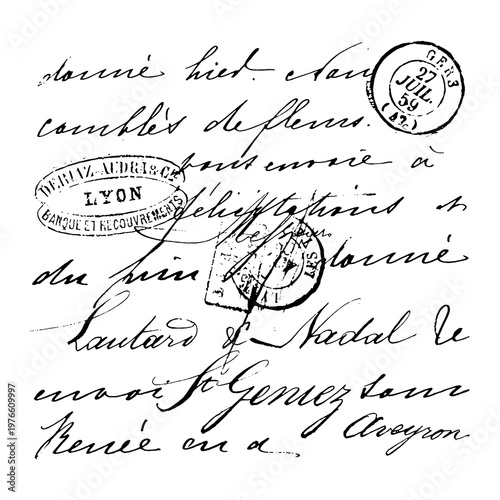 donné hied. Nou
GERS
27
JUIL.
59
comblés de fleurs.
DERIAZ-AUDRA & Cie
LYON
BANQUE ET RECOUVREMENTS
vous envoie à
félicitations et
du donné
Lautard & Nadal le
envoi St Geniez som
Renée en a Aveyron
Adobe Stock | #1976609997